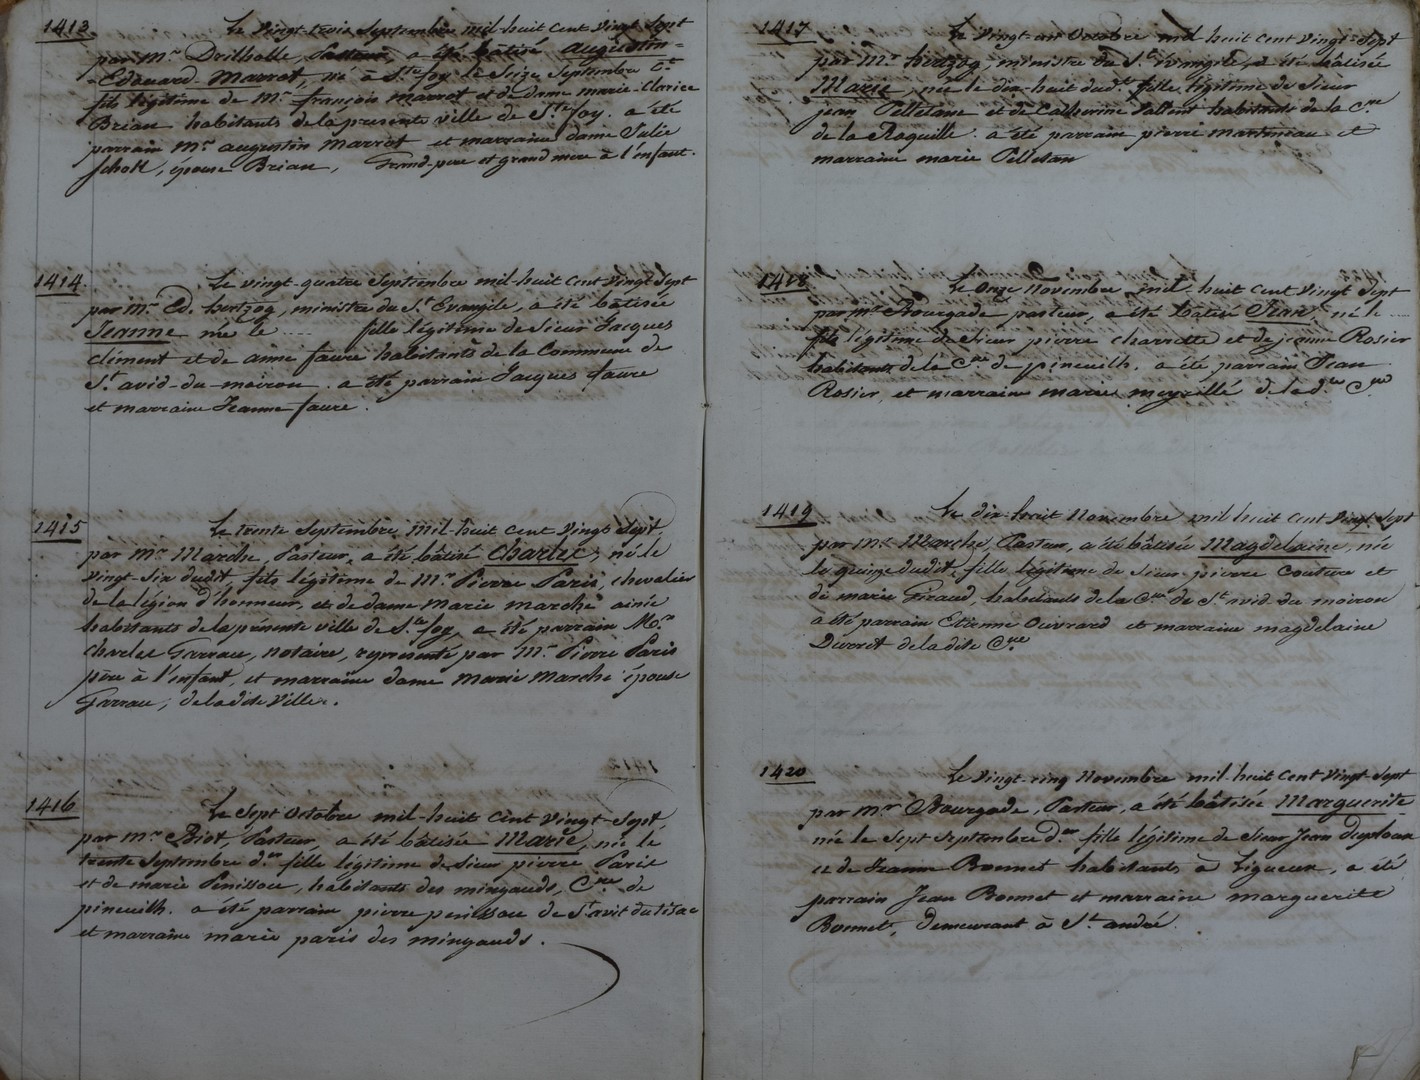 1413.
Le vingt-trois Septembre mil-huit cent vingt-Sept
par Mr. Drilholle, Pasteur, a été bâtisé Augustin=
=Edouard-Marrot, né à Ste foy le Seize Septembre Ct
fils légitime de Mr. françois Marrot et de dame marie-Clarice
Brian habitants de la presente ville de Ste foy. a été
parrain Mr. augustin Marrot et marraine dame Julie
Scholl, épouse Brian, Grand-pere et grand mere à l'enfant.
1414.
Le vingt-quatre Septembre mil-huit cent vingt-Sept
par Mr. Ed. hertzog, ministre du St. Evangile, a été bâtisée
Jeanne née le .... fille légitime de Sieur Jacques
clément et de anne faure habitants de la Commune de
St. avid-du-moiron. a été parrain Jacques faure
et marraine Jeanne faure.
1415
Le trente Septembre mil-huit cent vingt Sept,
par Mr. Marche, Pasteur, a été bâtisé Charles, né le
vingt-Six dudit, fils légitime de Mr. Pierre Paris, chevalier
de la légion d'honneur, et de dame Marie marche ainée
habitants de la présente ville de Ste foy, a été parrain Mr.
Charles Garrau, notaire, représenté par Mr. Pierre Paris
père à l'enfant, et marraine dame Marie Marche épouse
Garrau, de la dite Ville.
1416
Le Sept Octobre mil-huit cent vingt-Sept
par Mr. Riot, Pasteur, a été bâtisée Marie, née le
trente Septembre der. fille légitime de Sieur pierre Paris
et de marie Penissou, habitants des mingauds, Cne. de
pineuilh. a été parrain pierre penissou de St. avit du tizac
et marraine marie paris des mingauds.
1417
Le Vingt-un Octobre mil huit cent Vingt-Sept
par Mr. hertzog, ministre du St. Evangile, a été bâtisée
Marie, née le dix-huit dudt. fille légitime de Sieur
jean Pelletan et de Catherine Vallent habitants de la Cne
de la Roquille. a été parrain pierre martineau et
marraine marie Pelletan
1418
Le Onze Novembre mil huit cent Vingt Sept
par Mr. Bourgade pasteur, a été bâtisé Jean, né le ....
fils légitime de Sieur pierre charrette et de jeanne Rosier
habitants de la Cne. de pineuilh. a été parrain Jean
Rosier, et marraine marie meyrillé de la dte Cne
1419
Le dix-huit Novembre mil huit cent vingt Sept
par Mr. Marche, Pasteur, a été bâtisée Magdelaine, née
le quinze dudit, fille légitime de Sieur pierre Couture et
de marie Giraud, habitants de la Cne de St. avid du moiron
a été parrain Etienne Ouvrard et marraine magdelaine
Duvret de la dite Cne
1420
Le Vingt-cinq Novembre mil-huit cent Vingt-Sept
par Mr. Bourgade, Pasteur, a été bâtisée Marguerite
née le Sept Septembre der fille légitime de Sieur Jean Duploux
et de Jeanne Bonnet habitants à Ligueux, a été
parrain Jean Bonnet et marraine marguerite
Bonnet, demeurant à St. andré.